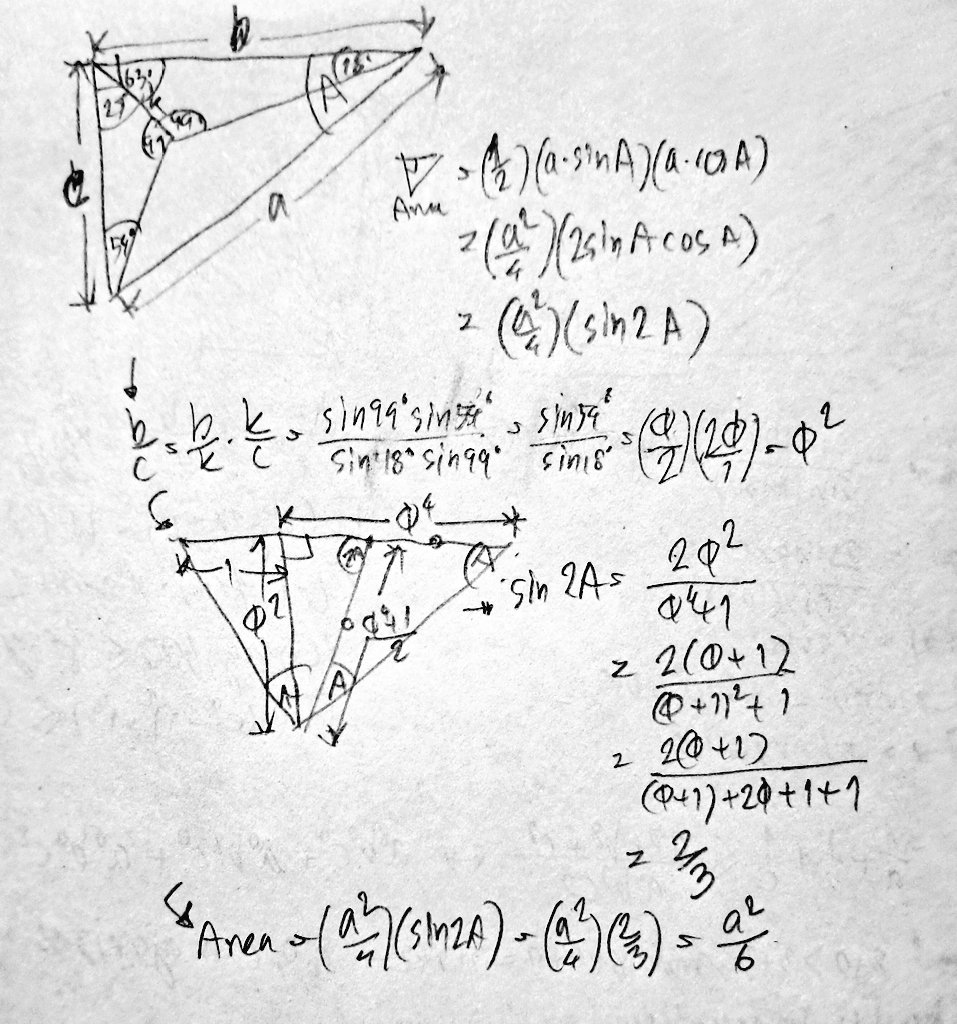 b
63° k 18°
27 A
99 99
c
a
54°
▽ = (1/2)(a·sinA)(a·cosA)
Area
= (a²/4)(2sinAcosA)
= (a²/4)(sin2A)
b/c = b/k · k/c = sin99°sin54°/sin18°sin99° = sin54°/sin18° = (φ/2)(2φ/1) = φ²
φ⁴
1 2A A
φ² φ⁴+1/2
A A
→ sin2A = 2φ²/φ⁴+1
= 2(φ+1)/(φ+1)²+1
= 2(φ+1)/(φ+1)+2φ+1+1
= 2/3
Area = (a²/4)(sin2A) = (a²/4)(2/3) = a²/6